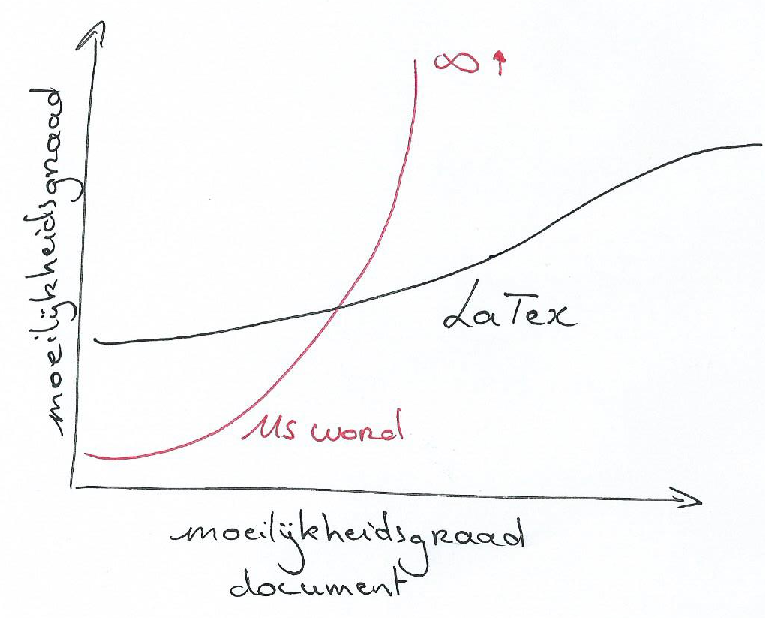 moeilijkheidsgraad
∞ ↑
LaTex
MS word
moeilijkheidsgraad
document